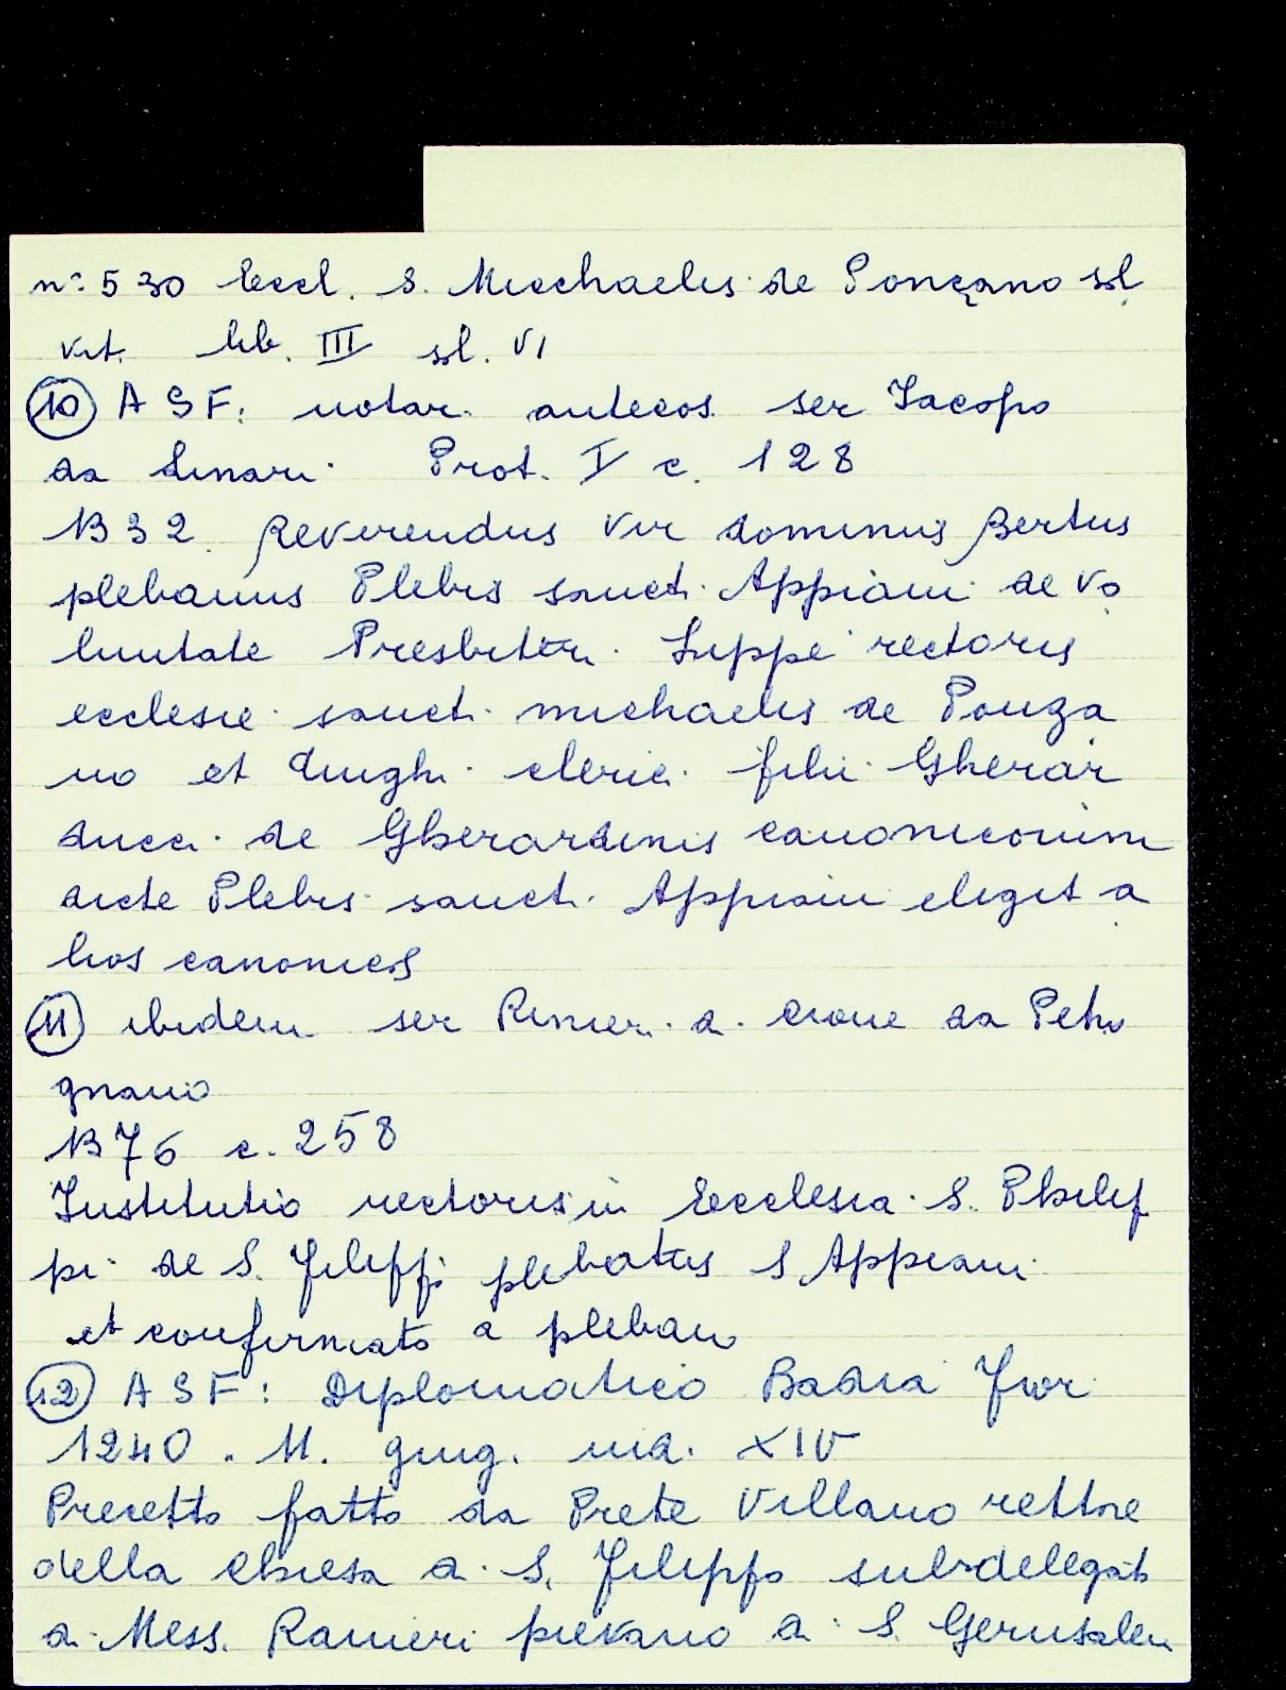 n: 530 Eccl. S. Micchaelis de Ponçano sol
vit. lib. III sol. VI
(10) ASF: notar. antecos. ser Iacopo
da Linari. Prot. I c. 128
1332. Reverendus vir dominus Bertus
plebanus Plebis sancti Appiani de vo
luntate Presbiteri Lippi rectoris
ecclesie sancti michaelis de Ponza
no et Dinghi cleric. filii Gherar
ducci de Gherardinis canonicorum
dicte Plebis sancti Appiani eligit a
lios canonicos
(11) ibidem ser Rinieri di Cione da Petro
gnano
1376 c. 258
Institutio rectoris in Ecclesia S. Philip
pi de S. Filippi plebatus S Appiani
et confirmato a plebano
(12) ASF: Diplomatico Badia Fior.
1240. 11. giug. ind. XIV
Precetto fatto da Prete Villano rettore
della chiesa di S. Filippo subdelegato
di Mess. Ranieri pievano di S. Gerusalem